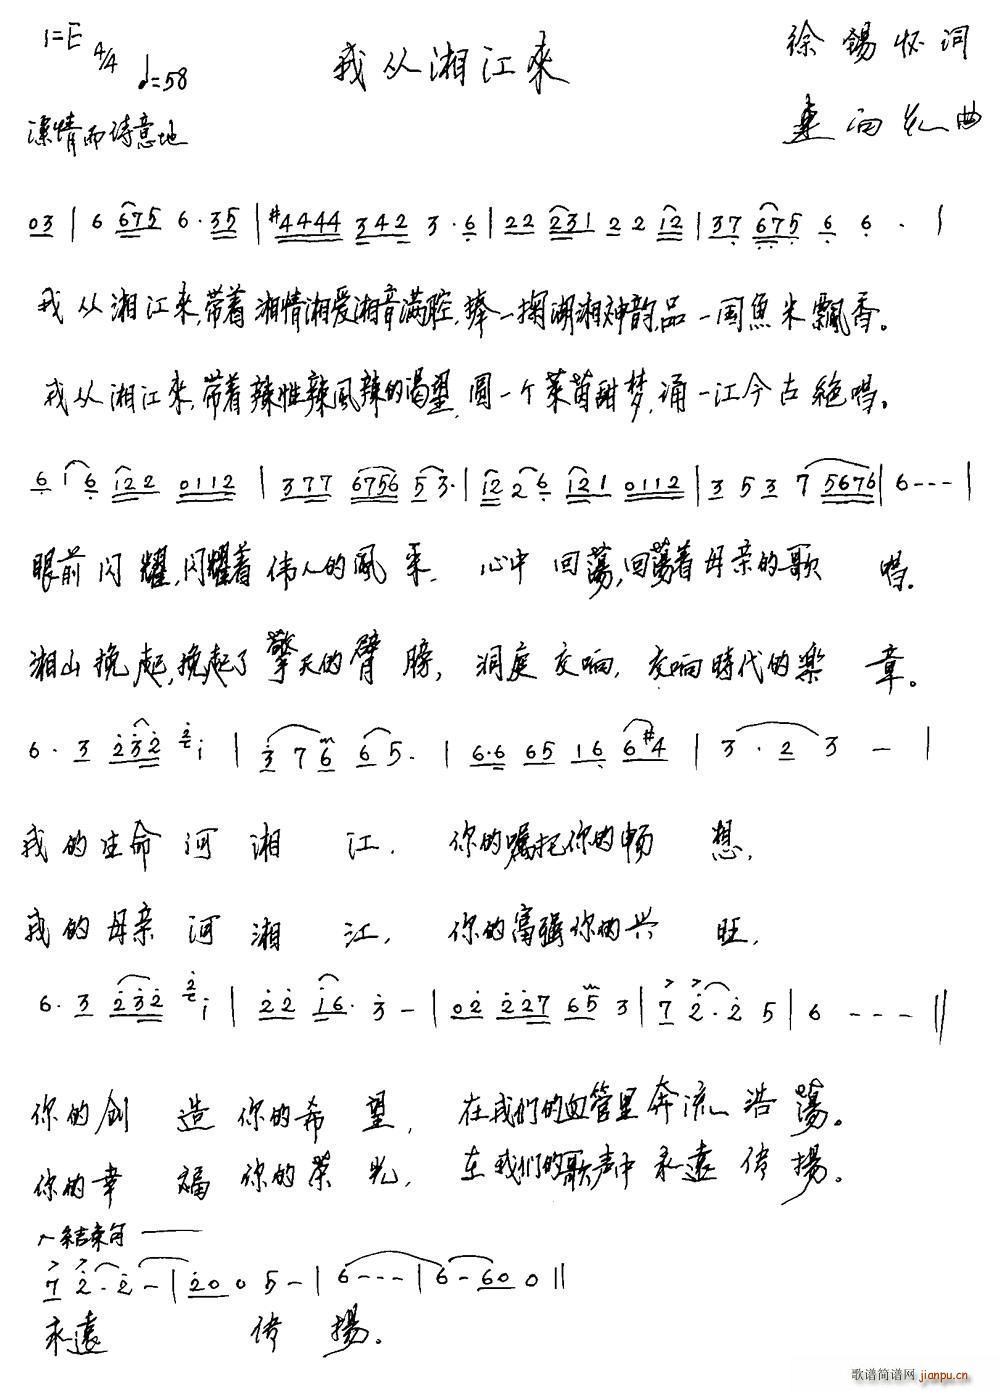 1=E 4/4 ♩=58
我从湘江來
徐锡怀词
东向红曲
深情而诗意地
03 | 6 675 6·35 | #4444 342 3·6 | 22 231 22 12 | 37 675 6 6 · |
我从湘江來,带着湘情湘爱湘音满腔,捧一掬湖湘神韵,品一国魚米飄香。
我从湘江來,带着辣性辣風辣的渴望,圆一个莱茵甜梦,诵一江今古絶唱。
6 i 6 122 0112 | 377 6756 53· | 12 26 121 0112 | 3 5 3 7 5676 | 6--- |
眼前闪耀,闪耀着伟人的風采, 心中回蕩,回蕩着母亲的歌唱。
湘山挽起,挽起了擎天的臂膀, 洞庭交响,交响時代的樂章。
6·3 232 2 i | 3 7 6 65· | 6·6 65 16 6#4 | 3·2 3 - |
我的生命河湘江, 你的嘱托你的畅想,
我的母亲河湘江, 你的富强你的兴旺,
6·3 232 2 i | 22 i6· 3 - | 02 227 65 3 | 7 2·2 5 | 6 - - - ‖
你的创造你的希望, 在我们的血管里奔流浩蕩。
你的幸福你的荣光, 在我们的歌声中永遠传揚。
结束句
7 2·2 - | 20 0 5 - | 6--- | 6-60 0 ‖
永遠 传揚。
歌谱简谱网 jianpu.cn